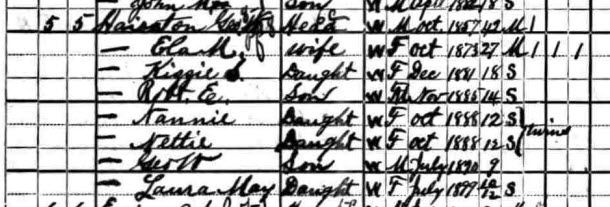 John Son W M Apr 1882 18 S
5 5 Hairston Geo W Head W M Oct 1857 42 M 1
— Ela M. Wife W F Oct 1873 27 M 1 1 1
— Kizzie S. Daught W F Dec 1881 18 S
— Robt. E. Son W M Nov 1885 14 S
— Nannie Daught W F Oct 1888 12 S twins
— Nettie Daught W F Oct 1888 12 S
— Geo W Son W M July 1890 9
— Laura May Daught W F July 1899 10/12 S